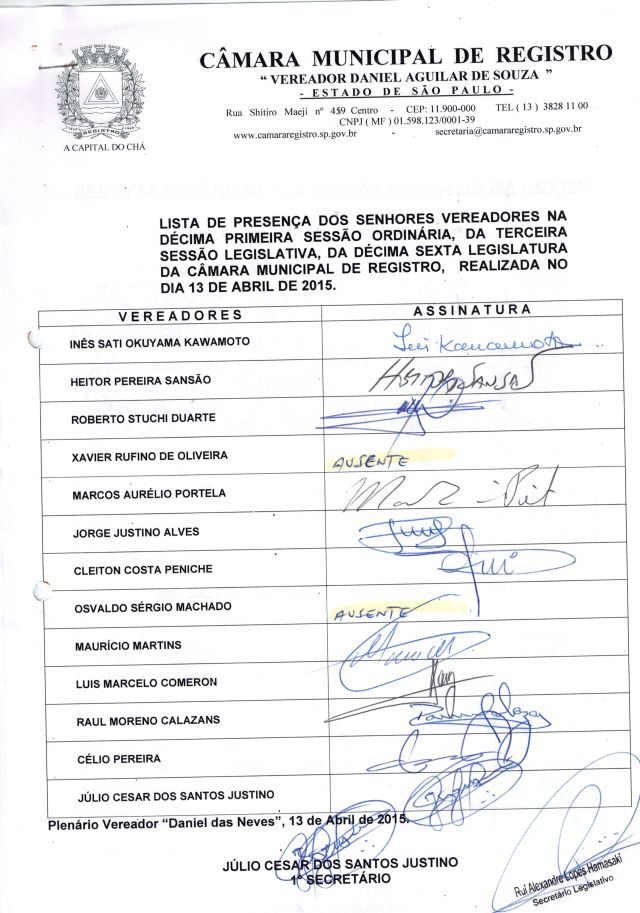 CÂMARA MUNICIPAL DE REGISTRO
“ VEREADOR DANIEL AGUILAR DE SOUZA ”
- ESTADO DE SÃO PAULO -
Rua Shitiro Maeji nº 459 Centro - CEP: 11.900-000 TEL ( 13 ) 3828 11 00
CNPJ ( MF ) 01.598.123/0001-39
www.camararegistro.sp.gov.br - secretaria@camararegistro.sp.gov.br
REGISTRO
A CAPITAL DO CHÁ
LISTA DE PRESENÇA DOS SENHORES VEREADORES NA
DÉCIMA PRIMEIRA SESSÃO ORDINÁRIA, DA TERCEIRA
SESSÃO LEGISLATIVA, DA DÉCIMA SEXTA LEGISLATURA
DA CÂMARA MUNICIPAL DE REGISTRO, REALIZADA NO
DIA 13 DE ABRIL DE 2015.
VEREADORES ASSINATURA
INÊS SATI OKUYAMA KAWAMOTO
HEITOR PEREIRA SANSÃO
ROBERTO STUCHI DUARTE
XAVIER RUFINO DE OLIVEIRA AUSENTE
MARCOS AURÉLIO PORTELA
JORGE JUSTINO ALVES
CLEITON COSTA PENICHE
OSVALDO SÉRGIO MACHADO AUSENTE
MAURÍCIO MARTINS
LUIS MARCELO COMERON
RAUL MORENO CALAZANS
CÉLIO PEREIRA
JÚLIO CESAR DOS SANTOS JUSTINO
Plenário Vereador “Daniel das Neves”, 13 de Abril de 2015.
JÚLIO CESAR DOS SANTOS JUSTINO
1º SECRETÁRIO
Rui Alexandre Lopes Hamasaki
Secretário Legislativo